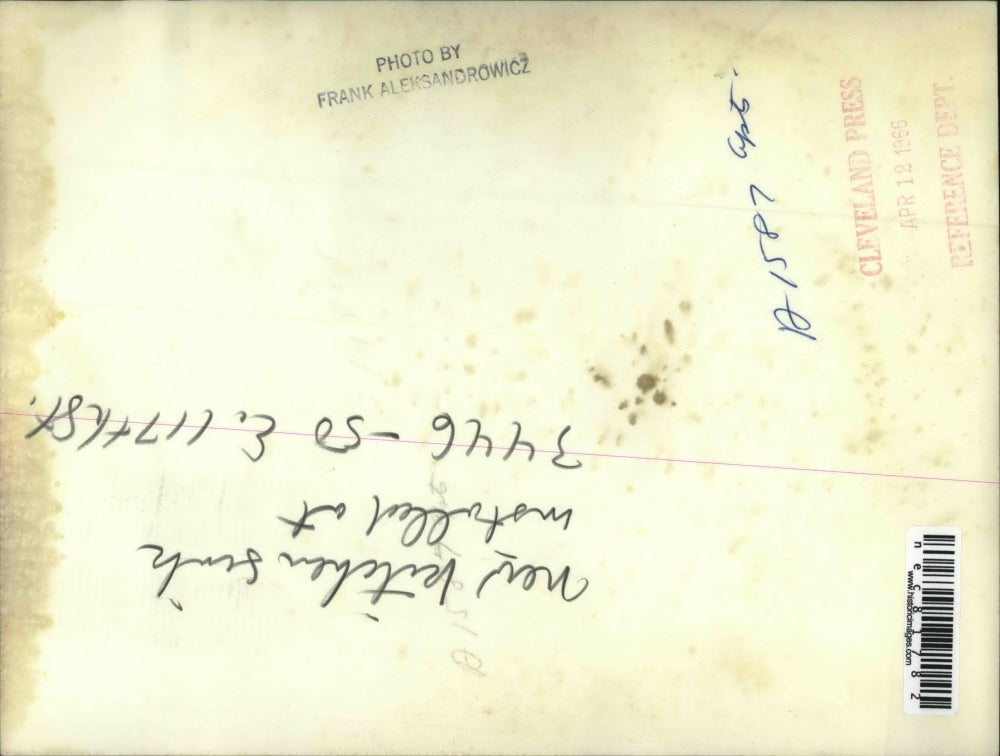 PHOTO BY
FRANK ALEKSANDROWICZ
CLEVELAND PRESS
APR 12 1966
REFERENCE DEPT.
new kitchen sink
installed at
3446-50 E. 117th St.
www.historicimages.com
n e c 8 1 7 8 2